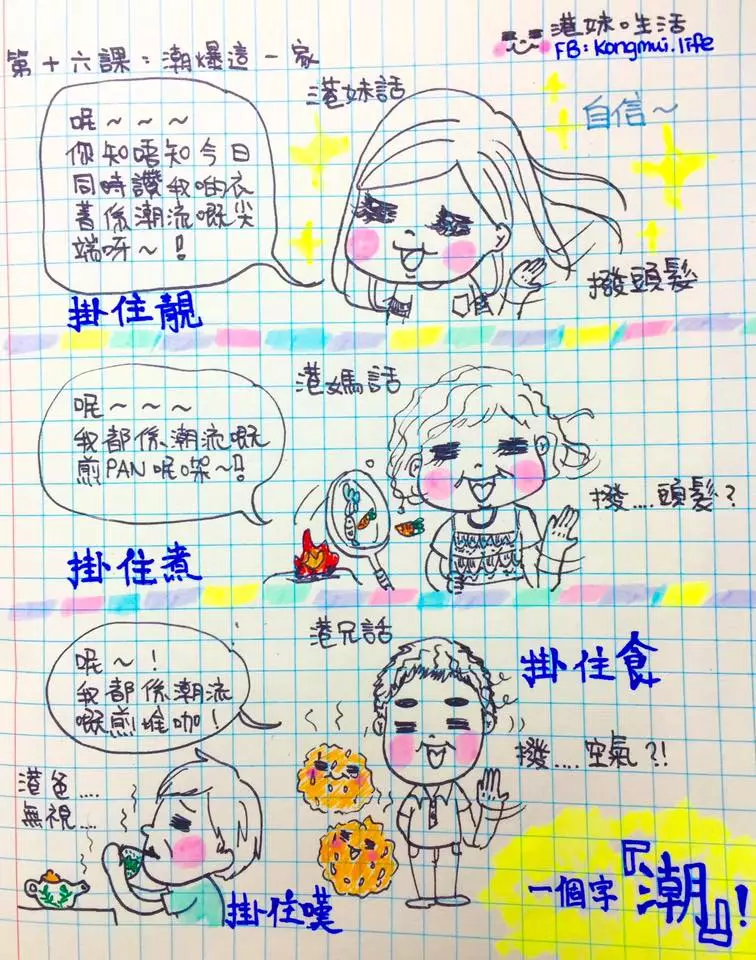 港妹。生活
FB: kongmui.life
第十六課：潮爆這一家
港妹話
自信~
呢~~~
你知唔知今日
同時讚我啲衣
著係潮流嘅尖
端呀~！
撥頭髮
掛住靚
港媽話
呢~~~
我都係潮流嘅
煎PAN呢㗎~!
撥....頭髮?
掛住煮
港兄話
呢~！
我都係潮流
嘅煎堆咖！
掛住食
撥....空氣?!
港爸....
無視....
掛住嘆
一個字『潮』!